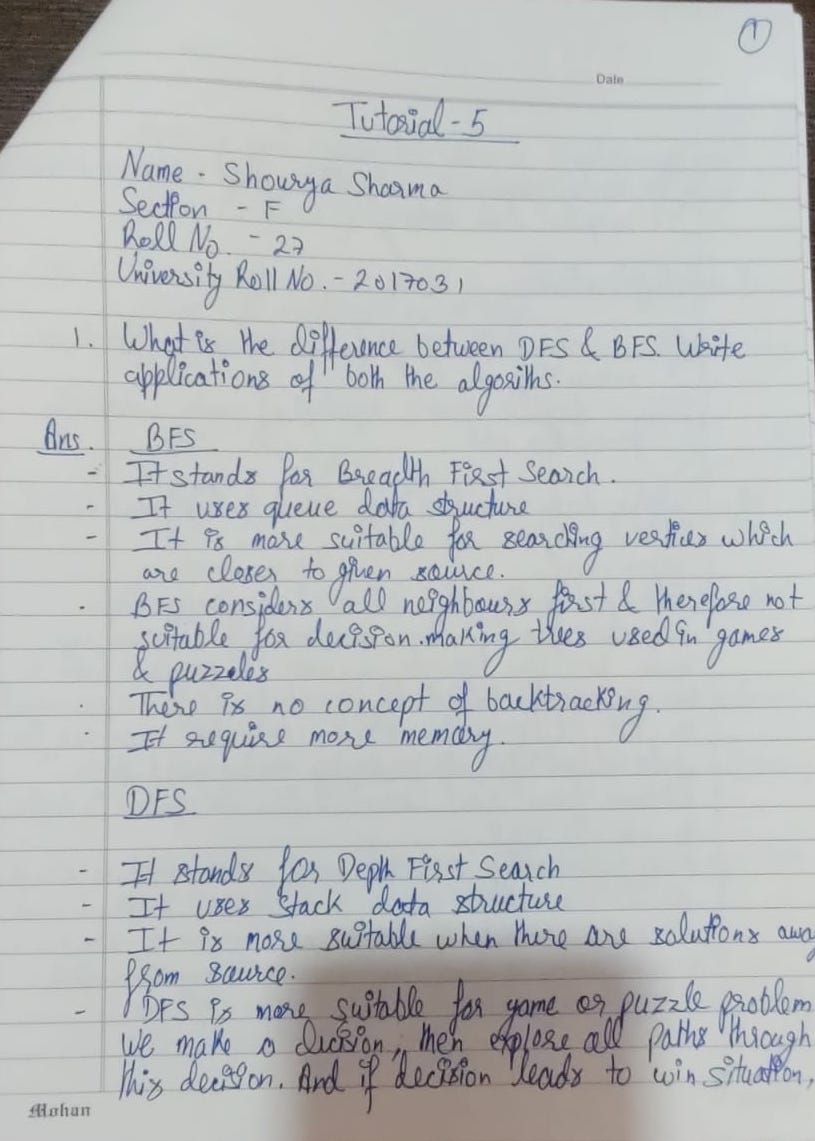 1
Date
Tutorial - 5
Name - Shourya Sharma
Section - F
Roll No. - 27
University Roll No. - 2017031
1. What is the difference between DFS & BFS. Write
applications of both the algoriths.
Ans. BFS
- It stands for Breadth First Search.
- It uses queue data structure
- It is more suitable for searching vertices which
are closer to given source.
- BFS considers all neighbours first & therefore not
suitable for decision-making trees used in games
& puzzeles
- There is no concept of backtracking.
- It require more memory.
DFS
- It stands for Depth First Search
- It uses stack data structure
- It is more suitable when there are solutions away
from source.
- DFS is more suitable for game or puzzle problem
We make a decision, then explore all paths through
this decision. And if decision leads to win situation,
Mohan